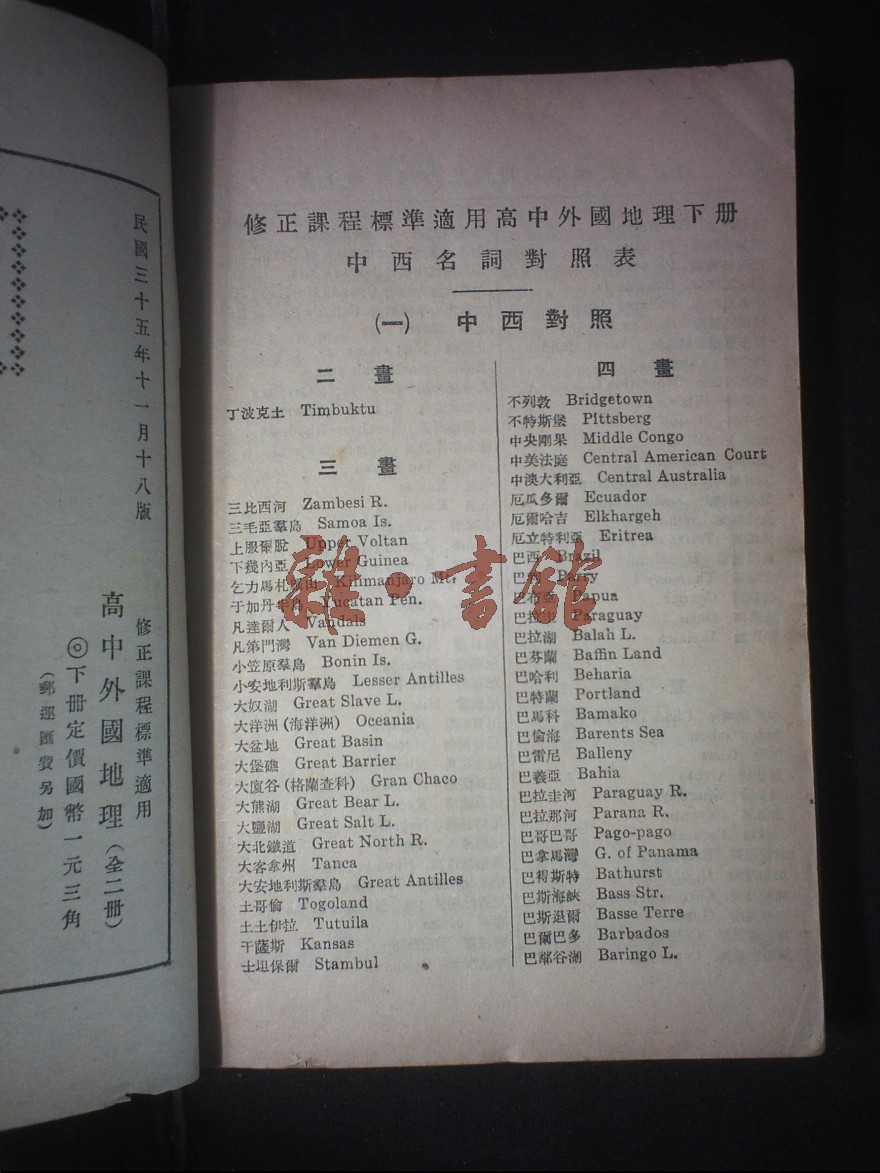 民國三十五年十一月十八版
修正課程標準適用
高中外國地理(全二冊)
◎下冊定價國幣一元三角
(郵運匯費另加)
修正課程標準適用高中外國地理下册
中西名詞對照表
(一) 中西對照
二畫
丁波克土 Timbuktu
三畫
三比西河 Zambesi R.
三毛亞羣島 Samoa Is.
上服爾脫 Upper Voltan
下幾內亞 Lower Guinea
乞力馬札 Kilimanjaro Mt.
于加丹半島 Yucatan Pen.
凡達爾人 Vandals
凡第門灣 Van Diemen G.
小笠原羣島 Bonin Is.
小安地利斯羣島 Lesser Antilles
大奴湖 Great Slave L.
大洋洲(海洋洲) Oceania
大盆地 Great Basin
大堡礁 Great Barrier
大廈谷(格蘭查科) Gran Chaco
大熊湖 Great Bear L.
大鹽湖 Great Salt L.
大北鐵道 Great North R.
大客拿州 Tanca
大安地利斯羣島 Great Antilles
土哥倫 Togoland
土土伊拉 Tutuila
干薩斯 Kansas
士坦保爾 Stambul
四畫
不列敦 Bridgetown
不特斯堡 Pittsberg
中央剛果 Middle Congo
中美法庭 Central American Court
中澳大利亞 Central Australia
厄瓜多爾 Ecuador
厄爾哈吉 Elkhargeh
厄立特利亞 Eritrea
巴西 Brazil
巴利 Parsy
巴布亞 Papua
巴拉圭 Paraguay
巴拉湖 Balah L.
巴芬蘭 Baffin Land
巴哈利 Beharia
巴特蘭 Portland
巴馬科 Bamako
巴倫海 Barents Sea
巴雷尼 Balleny
巴義亞 Bahia
巴拉圭河 Paraguay R.
巴拉那河 Parana R.
巴哥巴哥 Pago-pago
巴拿馬灣 G. of Panama
巴得斯特 Bathurst
巴斯海峽 Bass Str.
巴斯退爾 Basse Terre
巴爾巴多 Barbados
巴鄰谷湖 Baringo L.
雜·書館